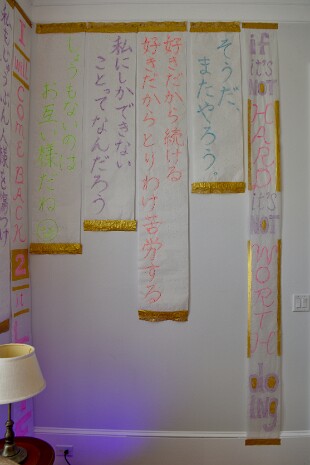 if
it's
NOT
HARD
it's
NOT
WORTH
doing
そうだ、
またやろう。
好きだから続ける
好きだからとりわけ苦労する
私にしかできない
ことってなんだろう
しょうもないのは
お互い様だね
I
will
COME BACK
2
it